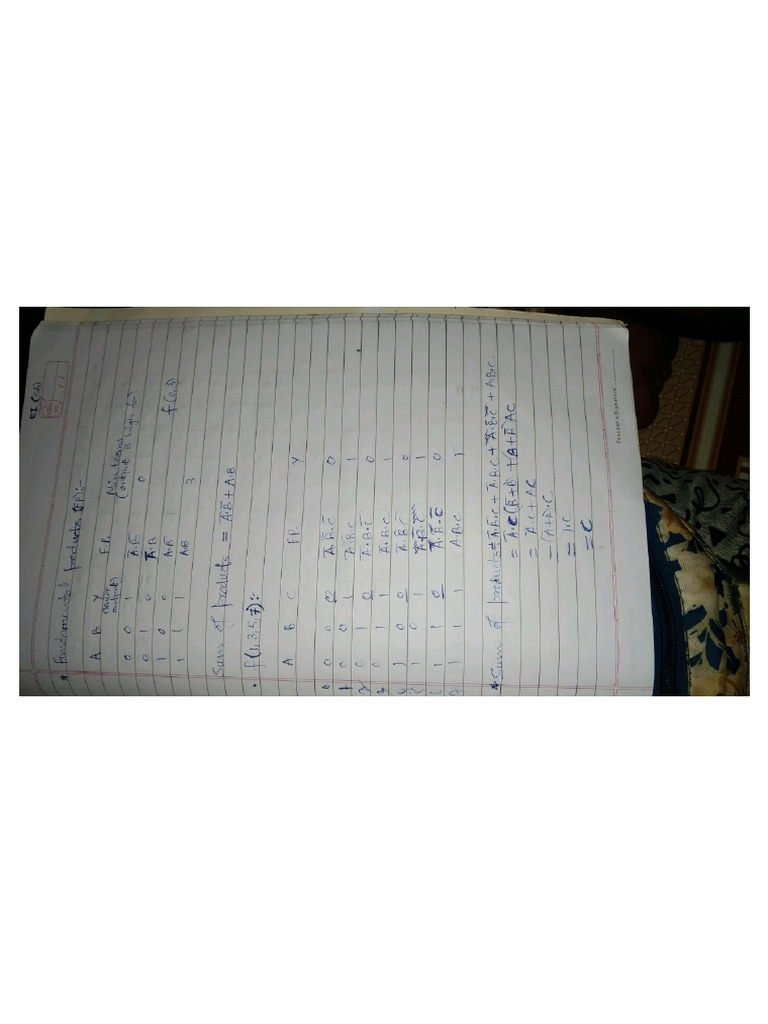 EI (
* Fundamental products (FP):-
A B Y F.P.
(output is high for)
0 0 1 A̅·B̅ 0
0 1 0 A̅·B
1 0 0 A·B̅ f(0,3)
1 1 1 A·B 3
Sum of products = A̅·B̅ + A·B
• f(1,3,5,7):-
A B C F.P. Y
0 0 0 0 A̅·B̅·C̅ 0
1 0 0 1 A̅·B̅·C 1
2 0 1 0 A̅·B·C̅ 0
3 0 1 1 A̅·B·C 1
1 0 0 A·B̅·C̅ 0
1 0 1 1
1 1 0 0
7 1 1 1 A·B·C 1
* Sum of products = A̅·B̅·C + A̅·B·C + A·B̅·C + A·B·C
= A̅·C(B̅+B) + (B+B̅)AC
= A̅C + AC
= (A̅+A)·C
= 1·C
= C
Teacher's Signature